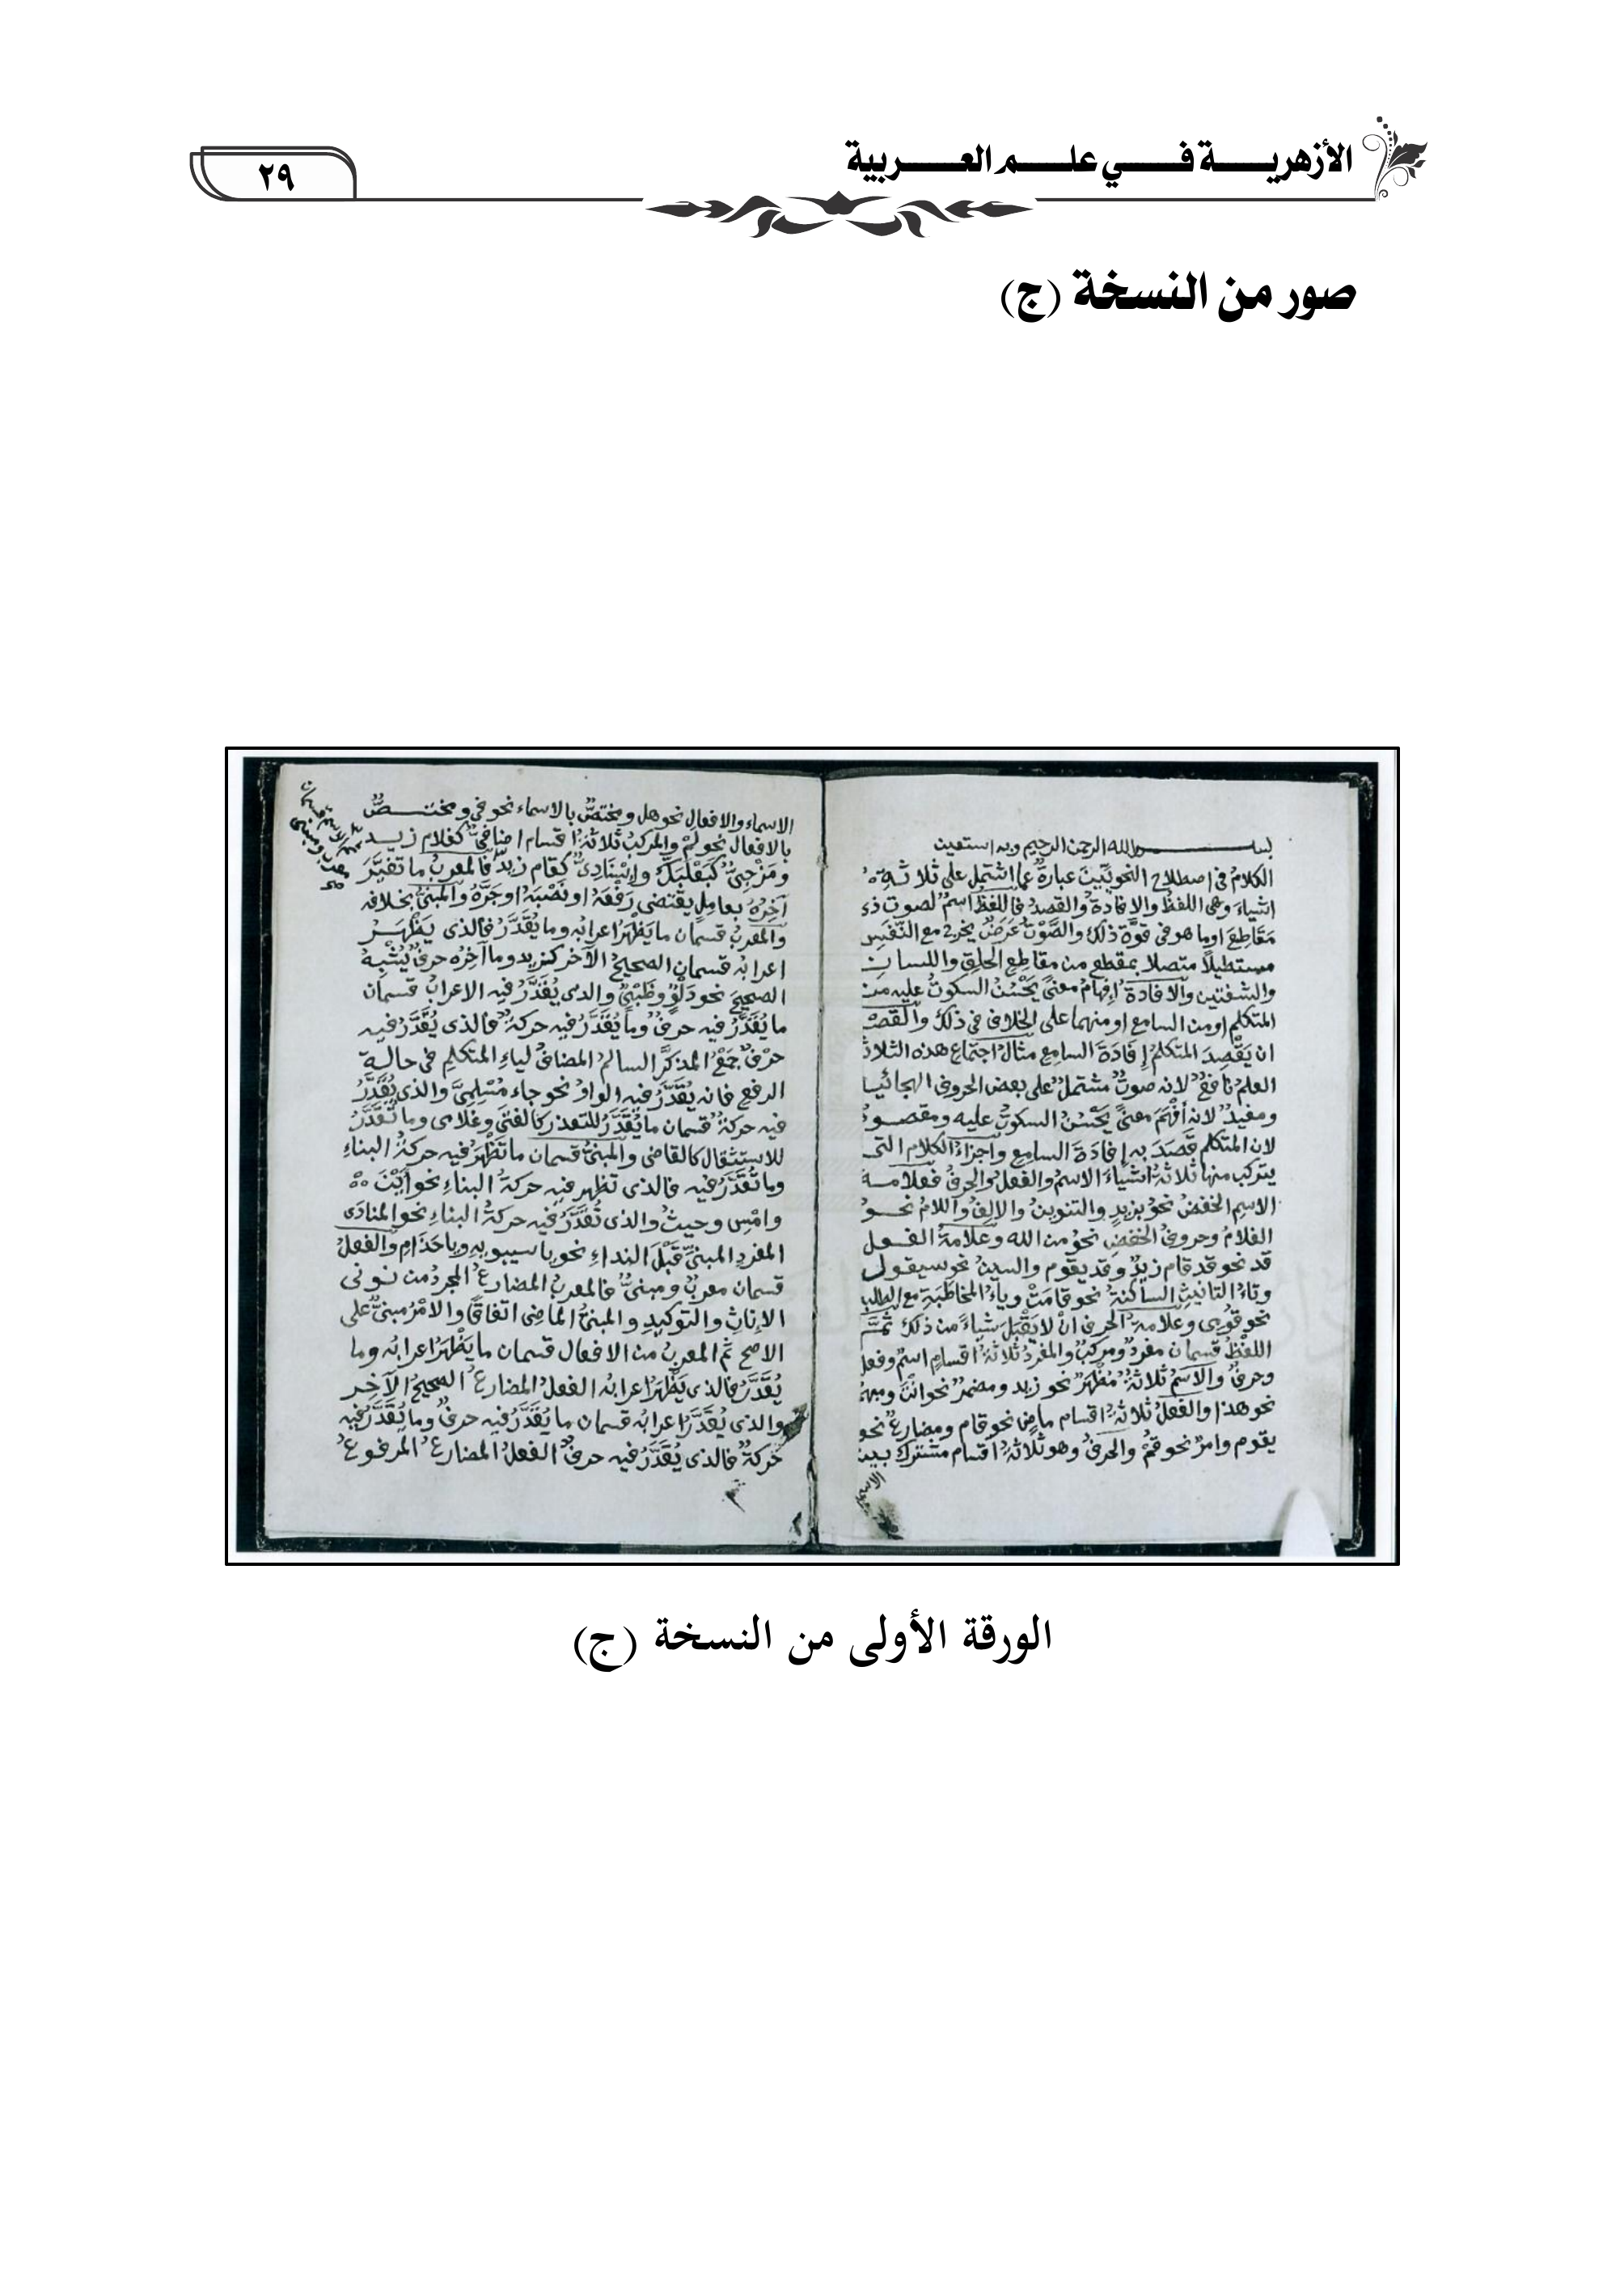 الأزهرية في علم العربية
٢٩
صور من النسخة (ج)
بسم الله الرحمن الرحيم وبه استعين
الكلامُ في اصطلاح النحويّينَ عبارةٌ عما اشتمل على ثلاثةِ
اشياءَ وهي اللفظُ والإفادةُ والقصدُ فاللفظُ اسمٌ لصوت ذي
مَقَاطِعَ او ما هو في قوَّة ذلك والصَّوْتُ عَرَضٌ يخرج مع النَّفَسِ
مستطيلًا متصلا بمقطع من مقاطع الحلق واللسان
والشفتين والافادةُ إفهامُ معنىً يَحْسُنُ السكوتُ عليه من
المتكلم او من السامع او منهما على الخلاف في ذلك والقصد
ان يَقْصِدَ المتكلمُ إفادَةَ السامع مثالُ اجتماع هذه الثلاث
العلمُ نافعٌ لانه صوتٌ مشتملٌ على بعض الحروف الهجائية
ومفيدٌ لانه أَفْهَمَ معنىً يَحْسُنُ السكوتُ عليه ومقصودٌ
لان المتكلم قَصَدَ به إفادَةَ السامع واجزاءُ الكلام التي
يتركب منها ثلاثةُ اشياءَ الاسمُ والفعلُ والحرفُ فعلامة
الاسمِ الخفضُ نحوُ بزيدٍ والتنوين والالِفُ واللامُ نحو
الغلامُ وحروفُ الخفضِ نحوُ من الله وعلامةُ الفعل
قد نحو قد قام زيدٌ وقد يقوم والسينُ نحو سيقول
وتاءُ التانيثِ الساكنةُ نحو قامَتْ وياءُ المخاطَبَةِ مع الطلب
نحو قُومِى وعلامةُ الحرف انْ لا يَقْبَلَ شياءً من ذلك ثمَّ
اللفْظُ قسمان مفردٌ ومركبٌ والمفردُ ثلاثةُ اقسامٍ اسمٌ وفعل
وحرفٌ والاسمُ ثلاثةٌ مُظْهَرٌ نحو زيد ومضمرٌ نحو انْتَ ومبهمٌ
نحو هذا والفعلُ ثلاثةُ اقسام ماضٍ نحو قام ومضارعٌ نحو
يقوم وامرٌ نحو قُمْ والحرفُ وهو ثلاثةُ اقسام مشترك بين
الاسماء
الاسماءِ والافعالِ نحو هل ومختصٌ بالاسماء نحو في ومختصٌّ
بالافعال نحو لَمْ والمركبُ ثلاثةُ اقسام اضافىٌّ كغلام زيد
ومَزْجىٌّ كَبَعْلَبَكَّ وإسْنَادِىٌّ كقام زيدٌ فالمعربُ ما تغيَّرَ
آخِرُهُ بعاملٍ يقتضى رَفْعَهُ او نَصْبَهُ او جَرَّهُ والمبنىُّ بخلافه
والمعربُ قسمان ما يَظْهَرُ اعرابُه وما يُقَدَّرُ فالذى يَظْهَرُ
اعرابُه قسمان الصحيحُ الآخر كزيد وما آخِرُه حرفٌ يُشْبِهُ
الصحيحَ نحو دَلْوٌ وظَبْىٌ والذى يُقَدَّرُ فيه الاعرابُ قسمان
ما يُقَدَّرُ فيه حرفٌ وما يُقَدَّرُ فيه حركةٌ فالذى يُقَدَّرُ فيه
حرْفٌ جَمْعُ المذكَّرِ السالمُ المضافُ لياءِ المتكلم فى حالة
الرفع فانه يُقَدَّرُ فيه الواوُ نحو جاء مُسْلِمِىَّ والذى يُقَدَّرُ
فيه حركةٌ قسمان ما يُقَدَّرُ للتعذر كالفتَى وغلامى وما تُقَدَّرُ
للاستثقال كالقاضى والمبنىُّ قسمان ما تَظْهَرُ فيه حركةُ البناءِ
وما تُقَدَّرُ فيه فالذى تظهر فيه حركةُ البناءِ نحو أَيْنَ
وامْسِ وحيثُ والذى تُقَدَّرُ فيه حركةُ البناءِ نحو المنادَى
المفردِ المبنىِّ قَبْلَ النداءِ نحو يا سيبويهِ ويا حَذَامِ والفعلُ
قسمان معربٌ ومبنىٌّ فالمعربُ المضارعُ المجردُ من نونى
الإناثِ والتوكيدِ والمبنىُّ الماضِى اتفاقًا والامْرُ مبنىٌّ على
الاصح ثم المعربُ من الافعال قسمان ما يَظْهَرُ اعرابُه وما
يُقَدَّرُ فالذى يَظْهَرُ اعرابُه الفعلُ المضارعُ الصحيحُ الآخِر
والذى يُقَدَّرُ اعرابُه قسمان ما يُقَدَّرُ فيه حرفٌ وما يُقَدَّرُ فيه
حركةٌ فالذى يُقَدَّرُ فيه حرفٌ الفعلُ المضارعُ المرفوعُ
الورقة الأولى من النسخة (ج)